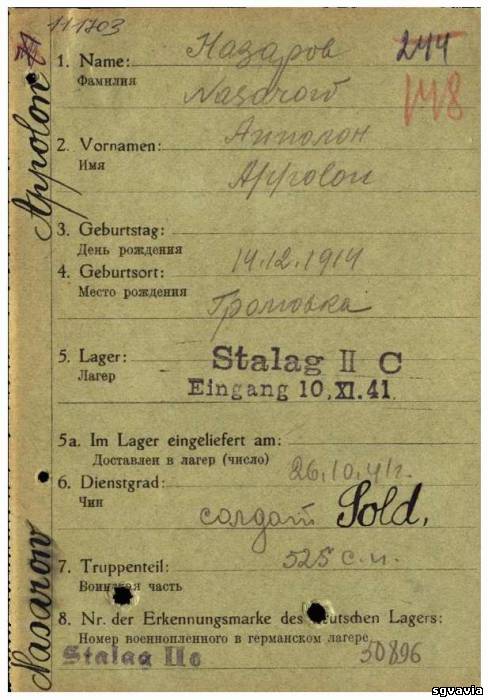 111703
Appolon
Nasarow
1. Name: Назаров 244
Фамилия
Nasarow 148
2. Vornamen: Апполон
Имя
Appolon
3. Geburtstag:
День рождения 14.12.1914
4. Geburtsort:
Место рождения
Громовка
5. Lager: Stalag II C
Лагер
Eingang 10.XI.41.
5a. Im Lager eingeliefert am:
Доставлен в лагер (число)
26.10.41г.
6. Dienstgrad:
Чин
солдат Sold.
7. Truppenteil: 525 с.п.
Воинская часть
8. Nr. der Erkennungsmarke des deutschen Lagers:
Номер военнопленного в германском лагере
Stalag IIc 50896
sgvavia